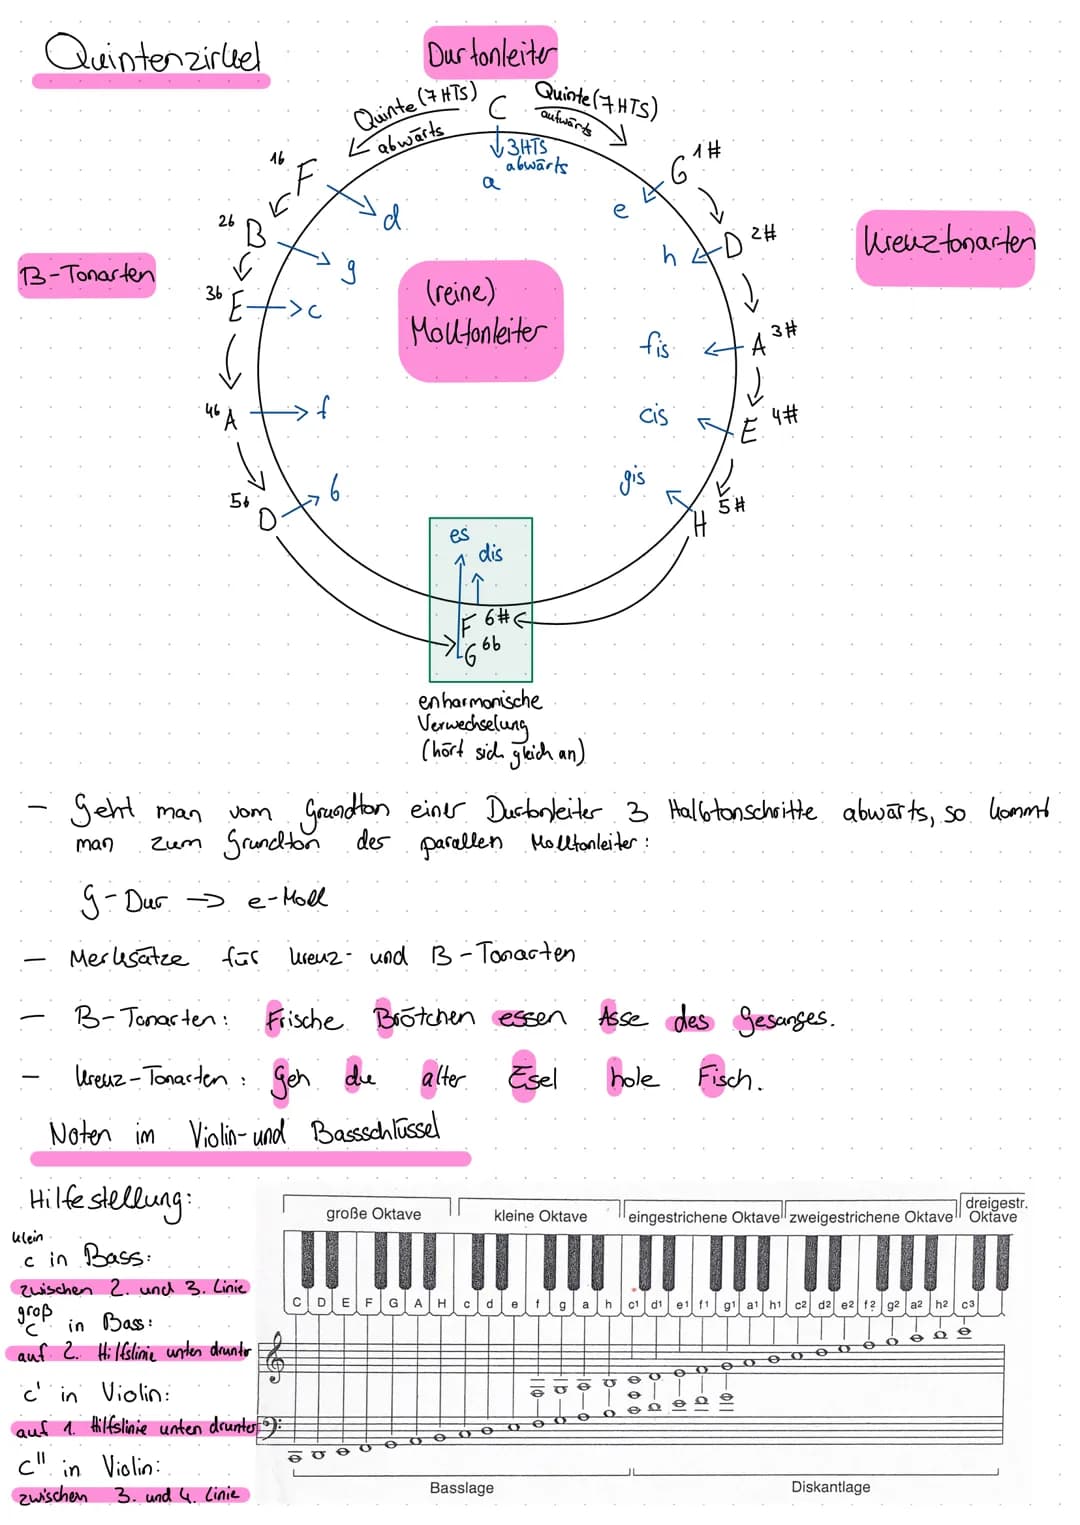 Quintenzirkel
Durtonleiter
Quinte (7 HTS)
abwärts
C
Quinte (7 HTS)
aufwärts
↓ 3HTS
abwärts
a
1b F
d
G 1#
e
2b B
g
D 2#
h
Kreuztonarten
B-Tonarten
3b E
c
(reine)
Molltonleiter
A 3#
fis
4b A
f
E 4#
cis
5b D
b
H 5#
gis
es
dis
F 6#
G 6b
enharmonische
Verwechselung
(hört sich gleich an)
- Geht man vom Grundton einer Durtonleiter 3 Halbtonschritte abwärts, so kommt
man zum Grundton der parallen Molltonleiter:
G-Dur → e-Moll
- Merksätze für Kreuz- und B-Tonarten
- B-Tonarten: Frische Brötchen essen Asse des Gesanges.
- Kreuz-Tonarten: Geh du alter Esel hole Fisch.
Noten im Violin- und Bassschlüssel
Hilfestellung:
klein
c in Bass:
zwischen 2. und 3. Linie
groß
C in Bass:
auf 2. Hilfslinie unten drunter
c' in Violin:
auf 1. Hilfslinie unten drunter
c'' in Violin:
zwischen 3. und 4. Linie
große Oktave
kleine Oktave
eingestrichene Oktave
zweigestrichene Oktave
dreigestr.
Oktave
C D E F G A H c d e f g a h c1 d1 e1 f1 g1 a1 h1 c2 d2 e2 f2 g2 a2 h2 c3
Basslage
Diskantlage